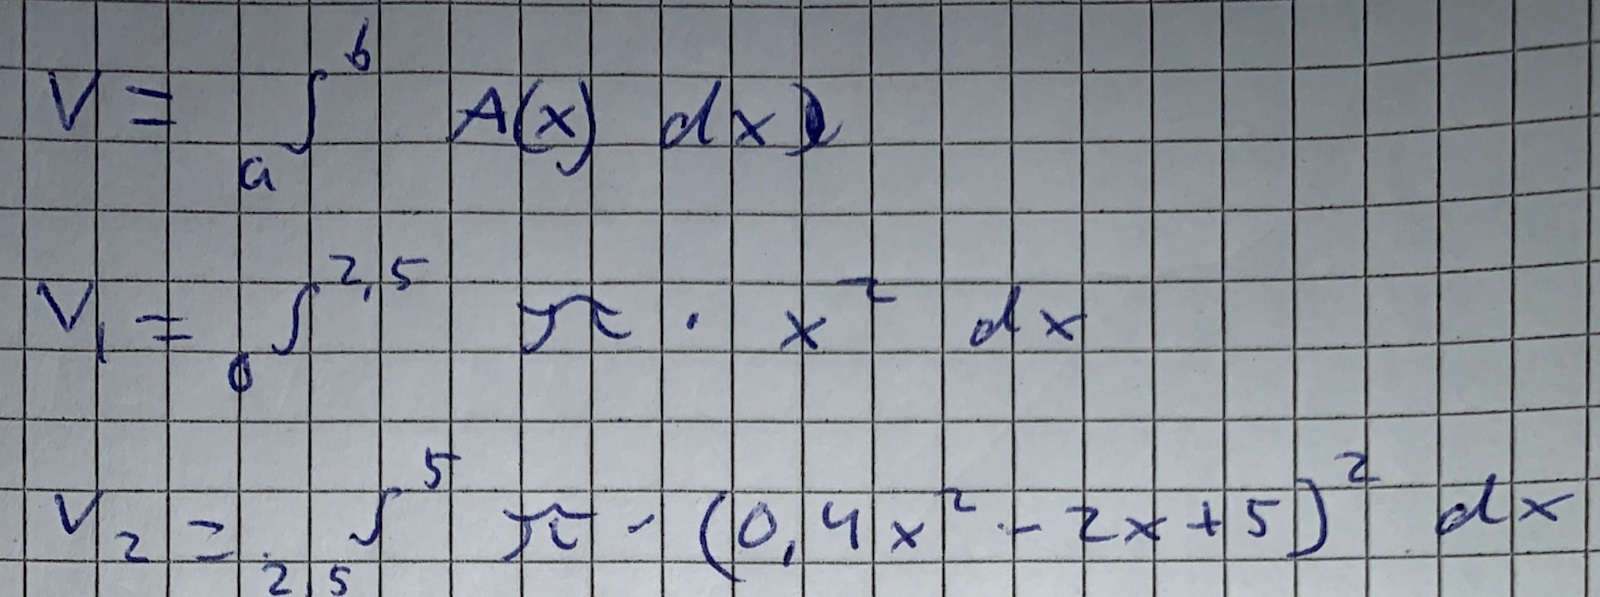 V = ₐ∫ᵇ A(x) dx
V₁ = ₀∫^2,5 π · x² dx
V₂ = _2,5∫^5 π · (0,4x² - 2x + 5)² dx